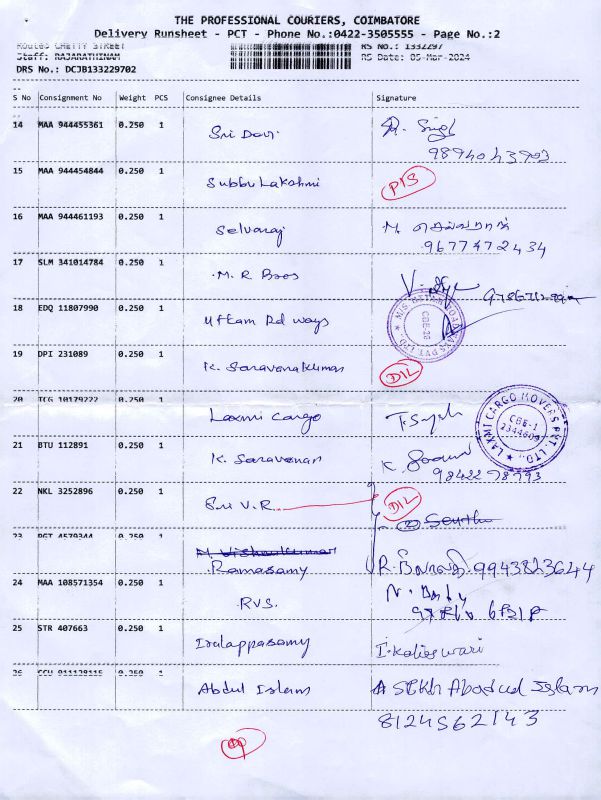 THE PROFESSIONAL COURIERS, COIMBATORE
Delivery Runsheet - PCT - Phone No.:0422-3505555 - Page No.:2
Route: CHETTY STREET RS No.: 1332297
Staff: RAJARATHINAM RS Date: 05-Mar-2024
DRS No.: DCJB133229702
S No Consignment No Weight PCS Consignee Details Signature
14 MAA 944455361 0.250 1 Sri Devi
15 MAA 944454844 0.250 1 Subbu Lakshmi PIS
16 MAA 944461193 0.250 1 Selvaraj M. செல்வராஜ்
9677472434
17 SLM 341014784 0.250 1 M. R Bros
18 EDQ 11807990 0.250 1 Uttam Rd ways
19 DPI 231089 0.250 1 K. Saravanakumar DIL
20 TCG 10179222 0.250 1 Laxmi Cargo
LAXMI CARGO MOVERS PVT. LTD. CBE-1
21 BTU 112891 0.250 1 K. Saravanan K.
9842278793
22 NKL 3252896 0.250 1 Sri V.R. DIL
23 PGT 4579344 0.250 1 Ramasamy R. 9943823644
24 MAA 108571354 0.250 1 RVS.
25 STR 407663 0.250 1 Irulappasamy I. Kalieswari
26 CCU 0.250 1 Abdul Islam SEKh Abodud Islam
8124562143